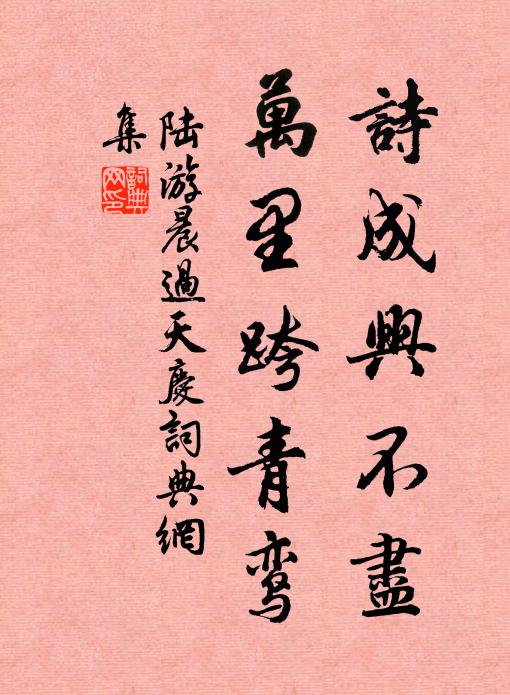 詩成興不盡
萬里跨青鸾
陆游晨過天慶詞典網
集
詞典
网印